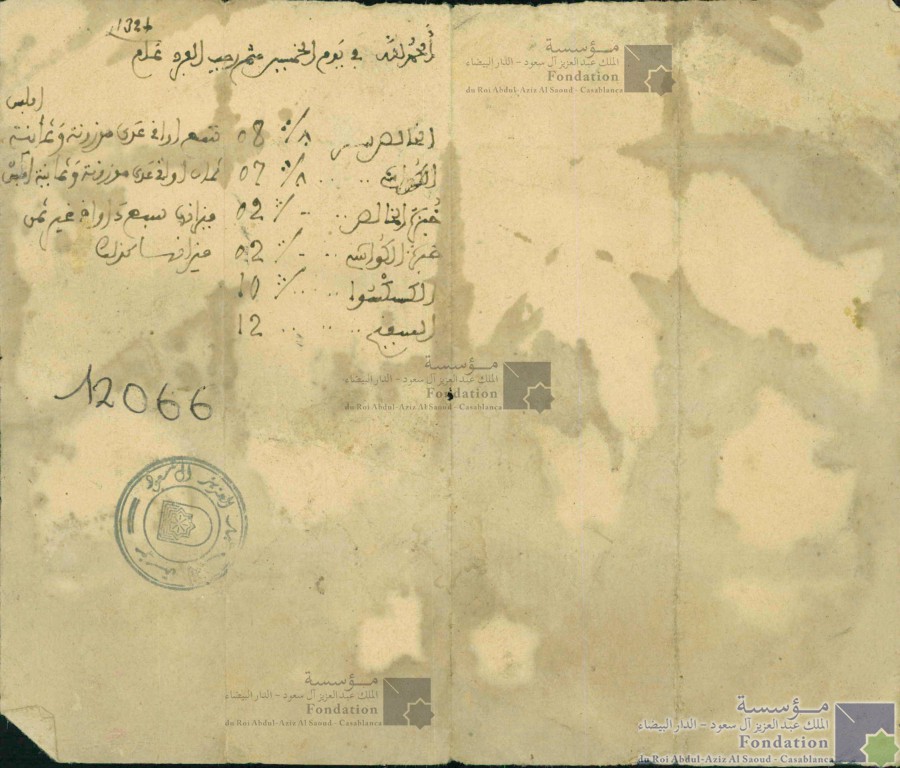 1326
الحمد لله في يوم الخميس رجب الفرد عام
الخالص 08
تسع اواقي عدى موزونة وثمانية افلس
07
ثمان اواقي عدى موزونة وثمانية افلس
خبزة الخالص 02
ميزانها سبع اواقي غير ثمن
خبزة 02
ميزانها كذلك
الكسكسوا 10
السميد 12
12066
العزيز آل سعود
مؤسسة
الملك عبد العزيز آل سعود - الدار البيضاء
Fondation
du Roi Abdul-Aziz Al Saoud - Casablanca
مؤسسة
الملك عبد العزيز آل سعود - الدار البيضاء
Fondation
du Roi Abdul-Aziz Al Saoud - Casablanca
مؤسسة
الملك عبد العزيز آل سعود - الدار البيضاء
Fondation
du Roi Abdul-Aziz Al Saoud - Casablanca
مؤسسة
الملك عبد العزيز آل سعود - الدار البيضاء
Fondation
du Roi Abdul-Aziz Al Saoud - Casablanca